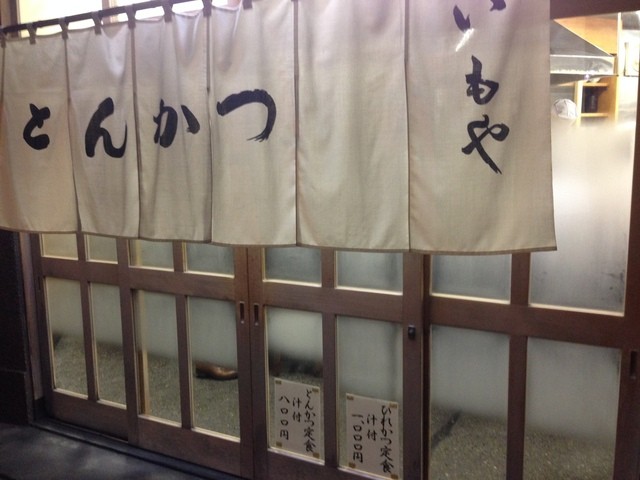 とんかつ
いもや
とんかつ定食
汁付
八〇〇円
ひれかつ定食
汁付
一〇〇〇円